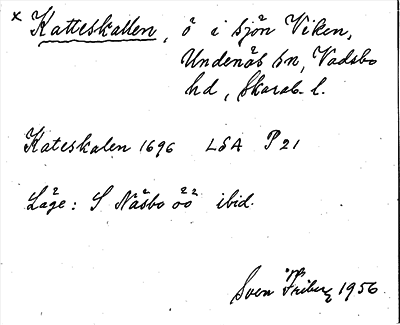 x Katteskallen, ö i sjön Viken,
Undenäs sn, Vadsbo
hd, Skarab. l.
Kateskalen 1696 LSA P21
Läge: S Näsbo öö ibid.
Sven Friberg 1956